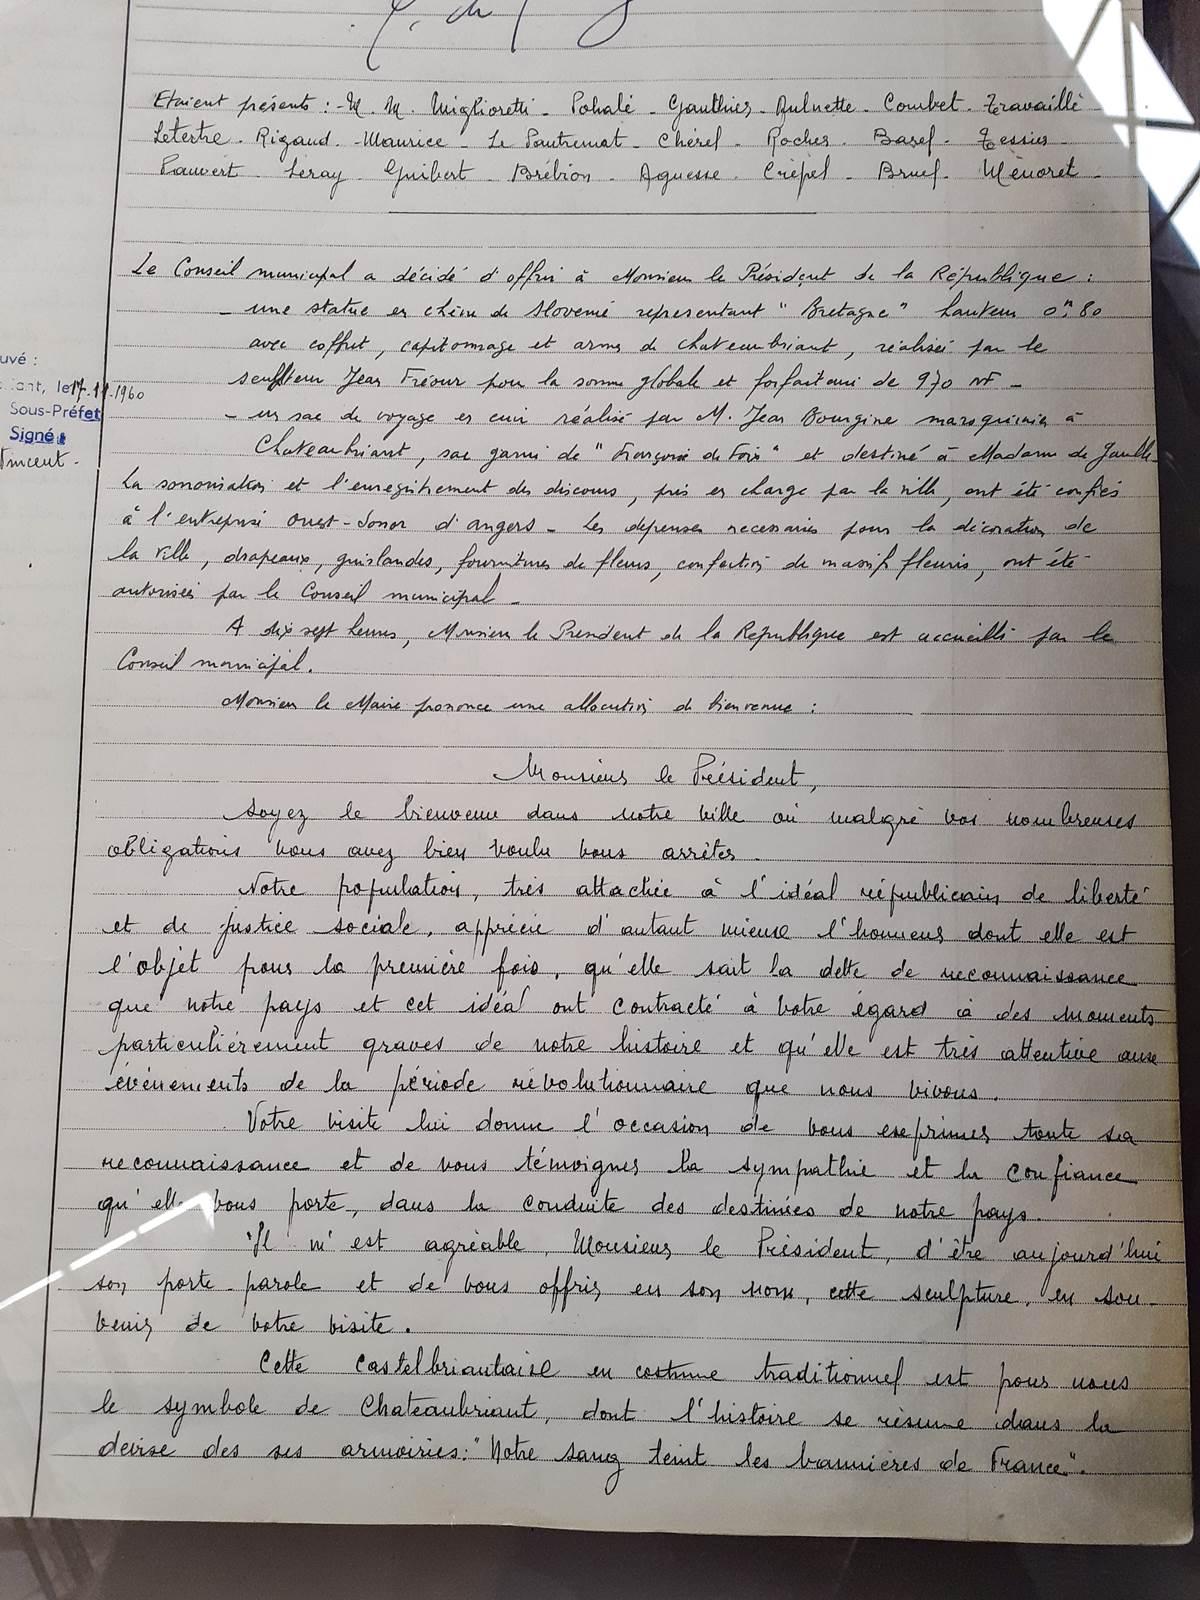 Etaient présents : - M. M. Miglioretti - Pohalé - Gauthier - Aulnette - Combet - Travaillé
Letertre - Rigaud - Maurice - Le Pautremat - Chérel - Rocher - Basef - Tessier -
Pauvert - Leray - Guibert - Brébion - Aguesse - Crépel - Bruel - Ménoret -
Le Conseil municipal a décidé d'offrir à Monsieur le Président de la République :
- une statue en chêne de Slovénie représentant "Bretagne" hauteur 0m,80
avec coffret, capitonnage et armes de Chateaubriant, réalisée par le
sculpteur Jean Fréour pour la somme globale et forfaitaire de 970 NF -
uvé :
iant, le 17.11.1960
Sous-Préfet
Signé :
Vincent.
- un sac de voyage en cuir réalisé par M. Jean Bourgine maroquinier à
Chateaubriant, sac garni de "Françoise de Foix" et destiné à Madame de Gaulle.
La sonorisation et l'enregistrement des discours, pris en charge par la ville, ont été confiés
à l'entreprise Ouest-Sonor d'Angers - Les dépenses necessaires pour la décoration de
la ville, drapeaux, guirlandes, fournitures de fleurs, confection de massifs fleuris, ont été
autorisées par le Conseil municipal -
A dix sept heures, Monsieur le Président de la République est accueilli par le
Conseil municipal.
Monsieur le Maire prononce une allocution de bienvenue :
Monsieur le Président,
Soyez le bienvenu dans notre ville où malgré vos nombreuses
obligations vous avez bien voulu vous arrêter.
Notre population, très attachée à l'idéal républicain de liberté
et de justice sociale, apprécie d'autant mieux l'honneur dont elle est
l'objet pour la première fois, qu'elle sait la dette de reconnaissance
que notre pays et cet idéal ont contracté à votre égard à des moments
particulièrement graves de notre histoire et qu'elle est très attentive aux
événements de la période révolutionnaire que nous vivons.
Votre visite lui donne l'occasion de vous exprimer toute sa
reconnaissance et de vous témoigner la sympathie et la confiance
qu'elle vous porte, dans la conduite des destinées de notre pays.
Il m'est agréable, Monsieur le Président, d'être aujourd'hui
son porte-parole et de vous offrir, en son nom, cette sculpture, en sou-
venir de votre visite.
Cette castelbriantaise en costume traditionnel est pour nous
le symbole de Chateaubriant, dont l'histoire se résume dans la
devise des ses armoiries : "Notre sang teint les bannières de France".